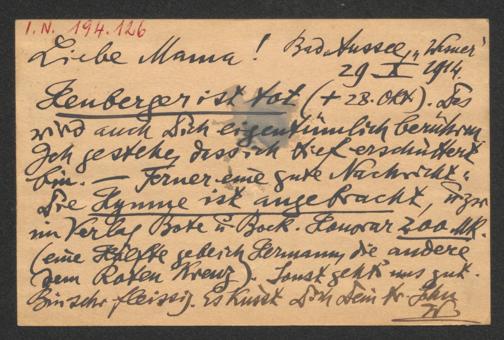 I.N. 194.126
Liebe Mama! Bad Aussee, "Werner"
29 X 1914.
Heuberger ist tot (+ 28. Okt). Das
wird auch Dich eigentümlich berühren
Ich gestehe, dass ich tief erschüttert
bin. — Ferner eine gute Nachricht:
Die Hymne ist angebracht, u. zw.
im Verlag Bote u Bock. Honorar 200 MK.
(eine Hälfte gebe ich Hermann, die andere
dem Roten Kreuz). Sonst geht's uns gut.
Bin sehr fleissig. Es küsst Dich Dein tr. Sohn